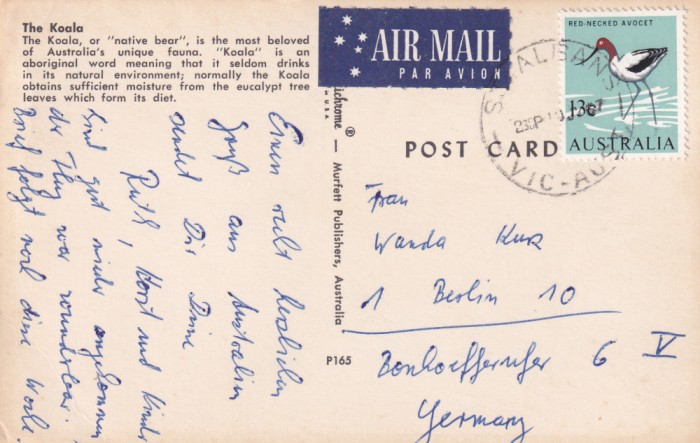 The Koala
The Koala, or "native bear", is the most beloved
of Australia's unique fauna. "Koala" is an
aboriginal word meaning that it seldom drinks
in its natural environment; normally the Koala
obtains sufficient moisture from the eucalypt tree
leaves which form its diet.
Einen recht herzlichen
Gruß aus Australien
sendet Dir Deine
Ruth, Horst und Kinder
Sind gut wieder angekommen
der Flug war wunderbar.
Brief folgt noch diese Woche.
ichrome ®
U.S.A.
Murfett Publishers, Australia
P165
AIR MAIL
PAR AVION
POST CARD
RED-NECKED AVOCET
13c
AUSTRALIA
ST. ALBANS
VIC-AUST
Frau
Wanda Kurz
1 Berlin 10
Bonhoefferufer 6 V
Germany